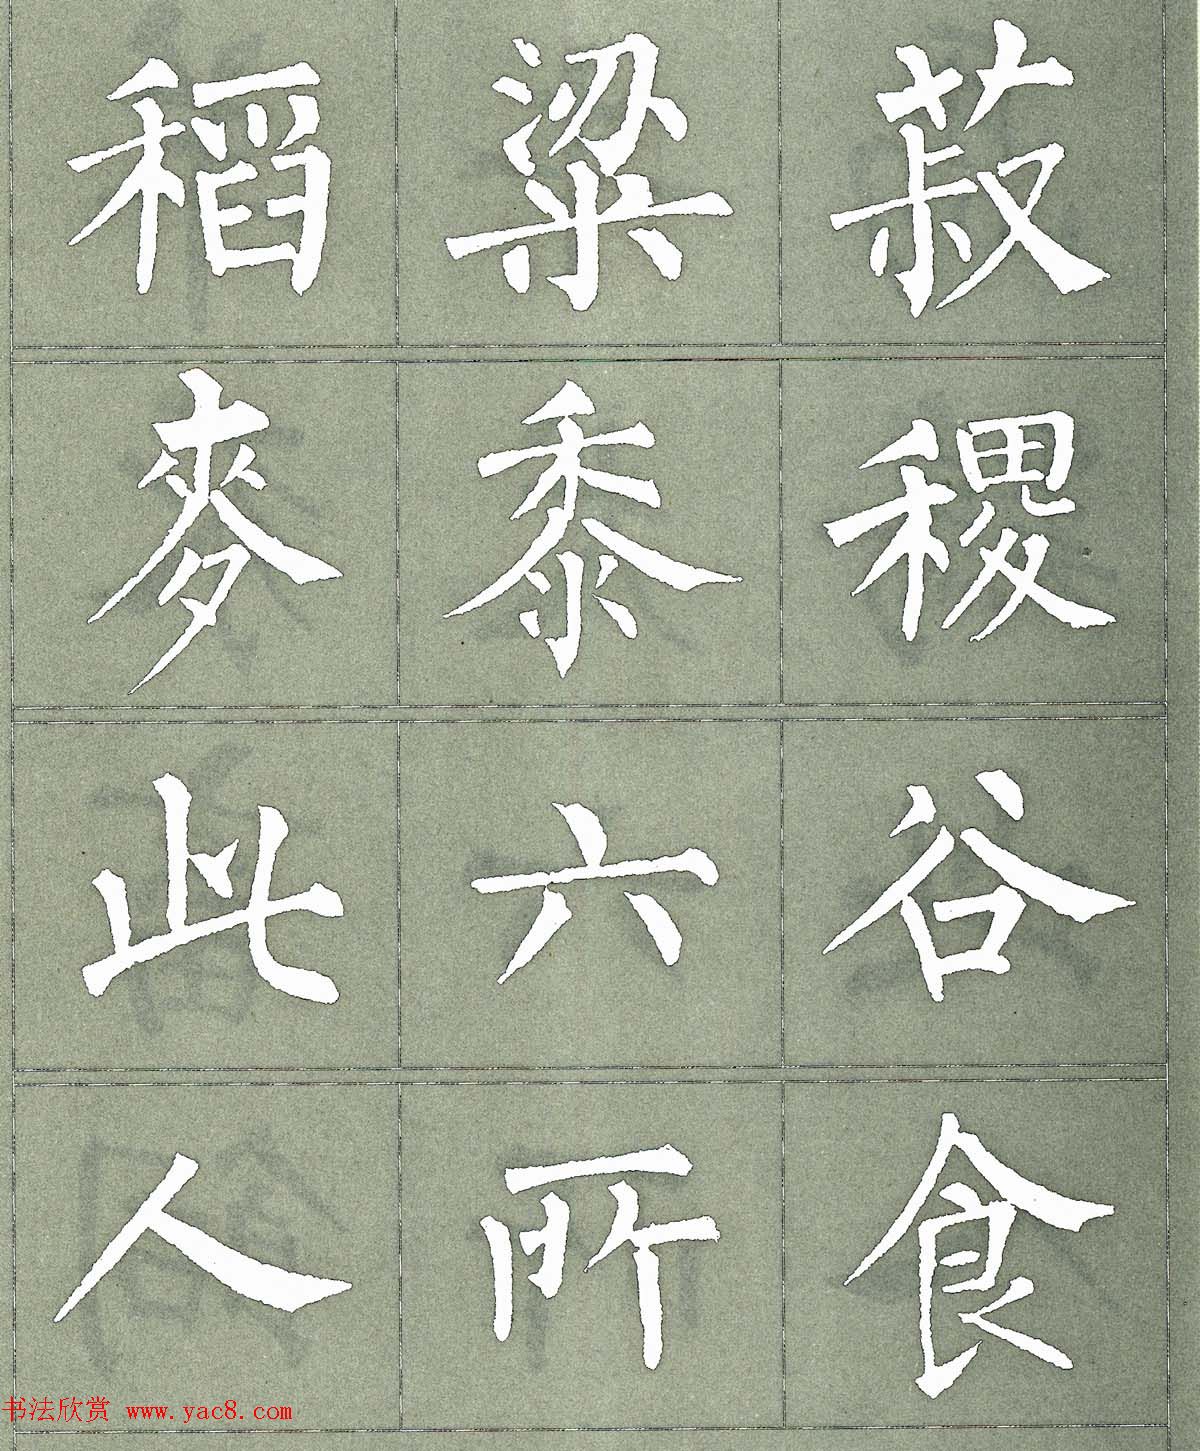 稻粱菽
麥黍稷
此六谷
人所食
书法欣赏 www.yac8.com